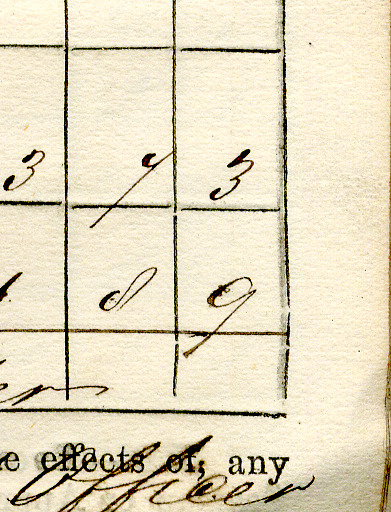 3 7 3
8 9
e effects of, any
Officer